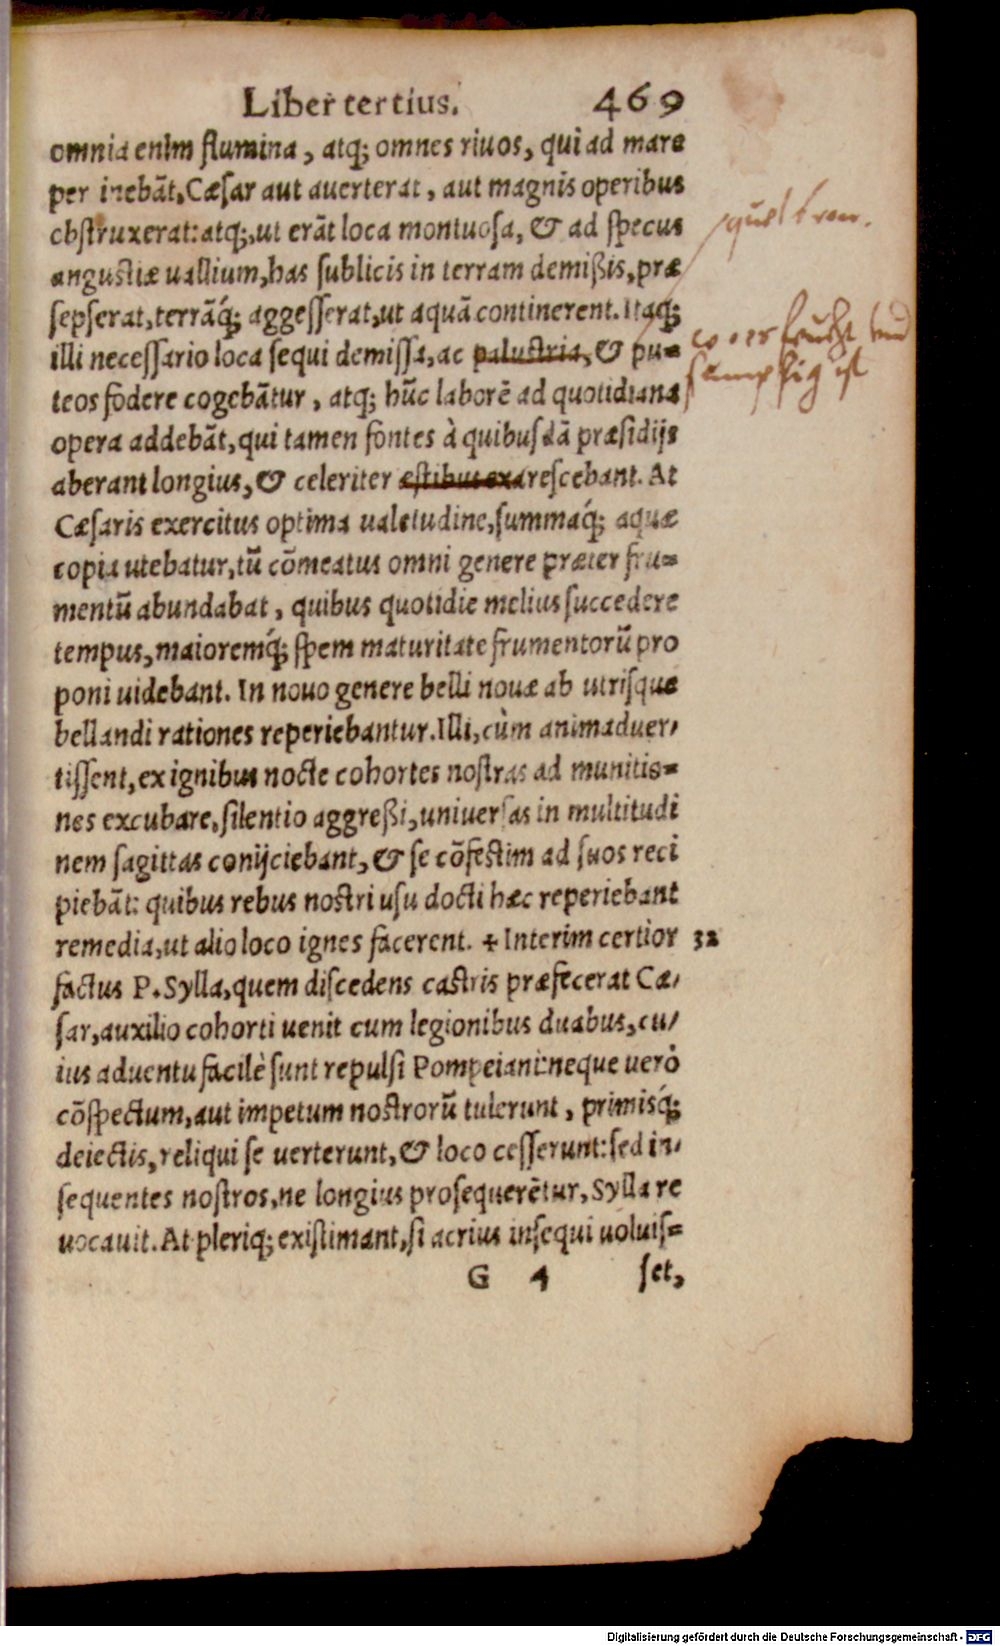 Liber tertius. 469
omnia enim flumina, atq; omnes riuos, qui ad mare
per inebāt, Cæsar aut auerterat, aut magnis operibus
obstruxerat: atq;, ut erāt loca montuosa, & ad specus
angustiæ uallium, has sublicis in terram demißis, præ
sepserat, terrāq́; aggesserat, ut aquā continerent. Itaq;
illi necessario loca sequi demissa, ac palustria, & pu=
teos fodere cogebātur, atq; hūc laborē ad quotidiana
opera addebāt, qui tamen fontes à quibusdā præsidijs
aberant longius, & celeriter æstibus exarescebant. At
Cæsaris exercitus optima ualetudine, summaq́; aquæ
copia utebatur, tū cōmeatus omni genere præter fru=
mentū abundabat, quibus quotidie melius succedere
tempus, maioremq́; spem maturitate frumentorū pro
poni uidebant. In nouo genere belli nouæ ab utrisque
bellandi rationes reperiebantur. Illi, cùm animaduer-
tissent, ex ignibus nocte cohortes nostras ad munitio=
nes excubare, silentio aggreßi, uniuersas in multitudi
nem sagittas conijciebant, & se cōfestim ad suos reci
piebāt: quibus rebus nostri usu docti hæc reperiebant
remedia, ut alio loco ignes facerent. + Interim certior 32
factus P. Sylla, quem discedens castris præfecerat Cæ-
sar, auxilio cohorti uenit cum legionibus duabus, cu-
ius aduentu facilè sunt repulsi Pompeiani: neque uerò
cōspectum, aut impetum nostrorū tulerunt, primisq́;
deiectis, reliqui se uerterunt, & loco cesserunt: sed in-
sequentes nostros, ne longius prosequerētur, Sylla re
uocauit. At pleriq; existimant, si acrius insequi uoluis=
G 4 set,
wo es feucht und
sumpfig ist
Digitalisierung gefördert durch die Deutsche Forschungsgemeinschaft - DFG